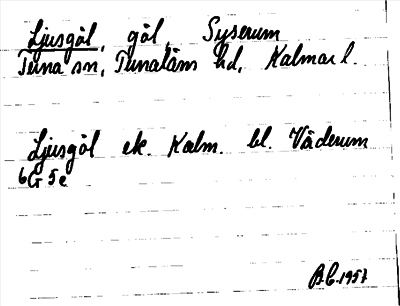 Ljusgöl, göl, Syserum
Tuna sn, Tunaläns hd, Kalmar l.
Ljusgöl ek. Kalm. bl. Väderum
6G 5e
B.C. 1957